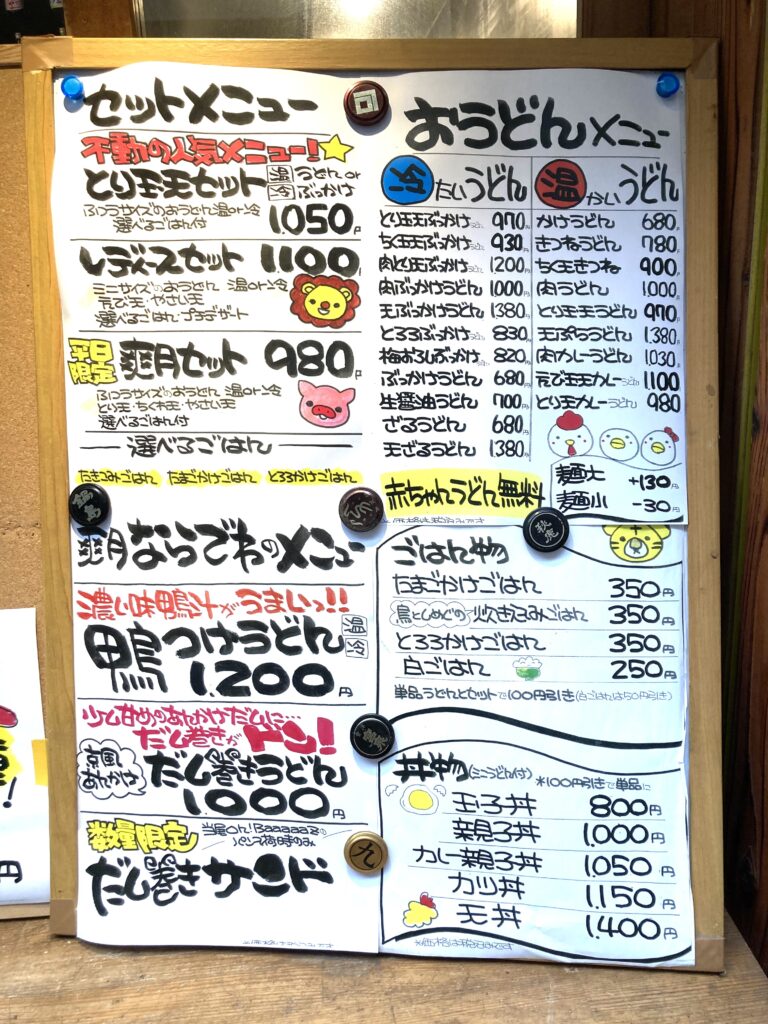 セットメニュー
不動の人気メニュー!
とり玉天セット 温うどん or 冷ぶっかけ
ふつうサイズのおうどん 温or冷
選べるごはん付
1,050円
レディースセット 1,100円
ミニサイズのおうどん 温or冷
えび天・やさい天
選べるごはん・プチデザート
平日限定 爽月セット 980円
ふつうサイズのおうどん 温or冷
とり天・ちくわ天・やさい天
選べるごはん
選べるごはん
たきこみごはん たまごかけごはん とろろかけごはん
おうどんメニュー
冷たいうどん
とり玉天ぶっかけうどん 970円
ちく玉天ぶっかけうどん 930円
肉とり玉天ぶっかけうどん 1200円
肉ぶっかけうどん 1,000円
天ぶっかけうどん 1,380円
とろろぶっかけうどん 830円
梅おろしぶっかけうどん 820円
ぶっかけうどん 680円
生醤油うどん 700円
ざるうどん 680円
天ざるうどん 1,380円
温かいうどん
かけうどん 680円
きつねうどん 780円
ちく天きつね 900円
肉うどん 1,000円
とり玉天うどん 970円
天ぷらうどん 1,380円
肉カレーうどん 1,030円
えび玉天カレーうどん 1100円
とり天カレーうどん 980円
麺大 +130円
麺小 -30円
赤ちゃんうどん無料
爽月ならではのメニュー
濃い味鴨汁がうまいっ!!
鴨つけうどん 温 冷
1,200円
少し甘めのあんかけだしに…
だし巻きがドン!
京風あんかけ だし巻きうどん
1000円
数量限定
だし巻きサンド
ごはん物
たまごかけごはん 350円
鳥とひじきの炊き込みごはん 350円
とろろかけごはん 350円
白ごはん 250円
単品うどんとセットで100円引き(白ごはんは50円引き)
丼物(ミニうどん付) *100円引きで単品に
玉子丼 800円
親子丼 1,000円
カレー親子丼 1,050円
カツ丼 1,150円
天丼 1,400円
*価格は税込みです
九